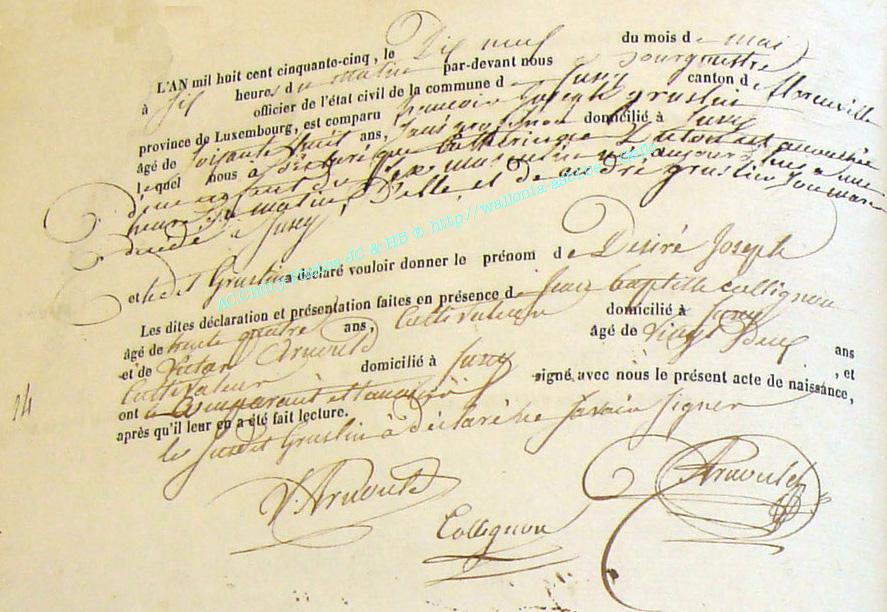 L'AN mil huit cent cinquante-cinq, le Dix neuf du mois de mai
à Six heures du matin par-devant nous Bourgmestre
officier de l'état civil de la commune de Jusey canton de florenville
province de Luxembourg, est comparu francois Joseph Gruslin
âgé de Soixante huit ans, Sans profession domicilié à Jusey
lequel nous a déclaré que Catherinne est accouchée
d'un enfant du Sexe masculin né aujourd'hui à une
heure du matin, D'elle et de andré gruslin Son mari
à Jusey
et ledit Gruslin a déclaré vouloir donner le prénom de Desiré Joseph
Les dites déclaration et présentation faites en présence de Jean baptiste collignon
âgé de trente quatre ans, Cultivateur domicilié à Jusey
et de Victor Arnould âgé de Vingt Deux ans
Cultivateur domicilié à Jusey , et
ont signé avec nous le présent acte de naissance,
après qu'il leur en a été fait lecture.
le Susdit Gruslin à déclaré ne Savoir Signer
14
V. Arnould
Arnould
Collignon
http://wallonia-asbl